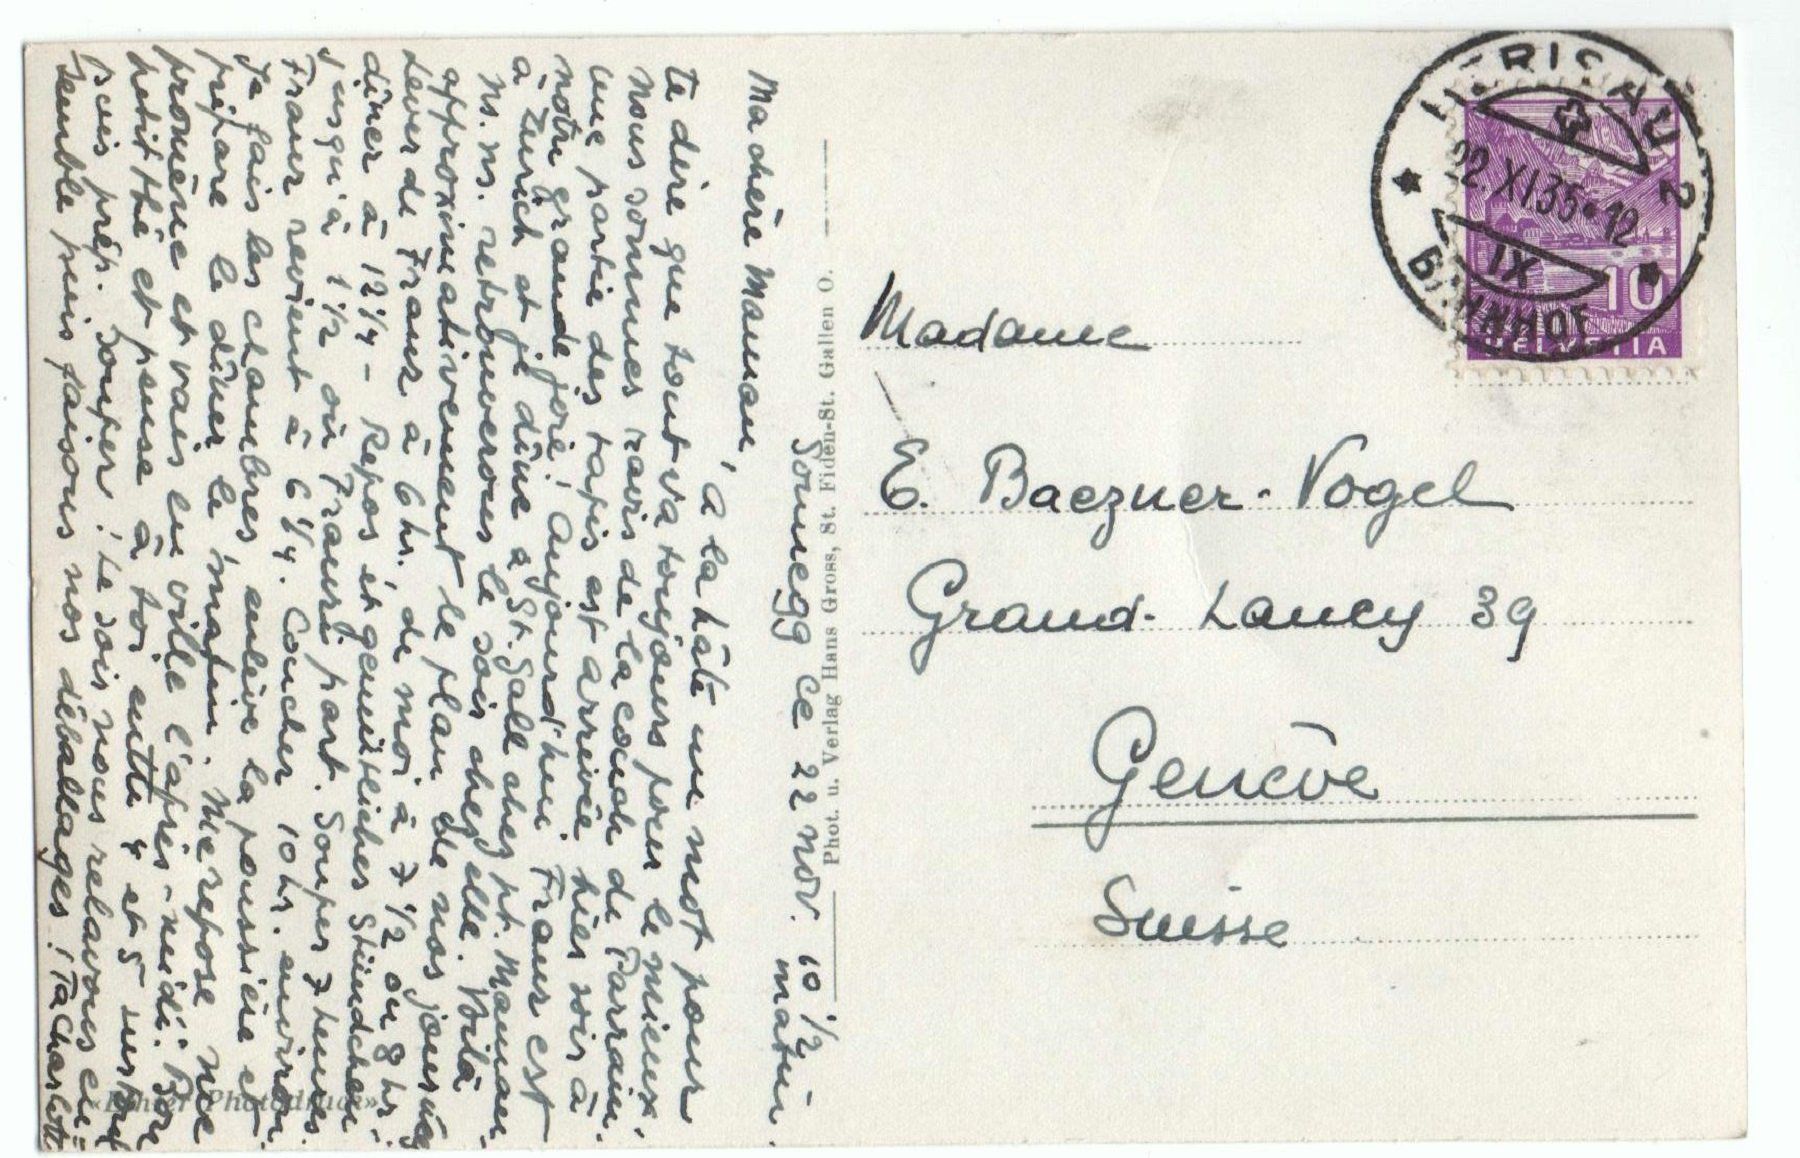 Sonnegg ce 22 nov. 10 1/2
matin.
Ma chère Maman,
à la hâte un mot pour
te dire que tout va toujours pour le mieux.
Nous sommes ravis de la couch de Parrain.
une partie des tapis est arrivée hier soir à
notre grande joie! Aujourd'hui Franz est
à Zurich et je dîne à St. Gall chez pt. Maman.
ns. ns. retrouverons le soir chez elle. Voilà
approximativement le plan de nos journées
Lever de Franz à 6 hr. de moi à 7 1/2 ou 8 hr.
dîner à 12 1/4 - Repos et gemütliches Stündchen
jusqu'à 1 1/2 où Franz part. Souper 7 heures.
Franz revient à 6 1/4. Coucher 10 hr. environ.
Je fais les chambres enlève la poussière et
prépare le dîner le matin. Me repose me
promène et vais en ville l'après-midi. Bon
petit thé et pense à toi entre 4 et 5 surtout
Puis prép. souper! Le soir nous relavons en-
semble puis faisons nos déballages! Ta Charlotte
Phot. u. Verlag Hans Gross, St. Fiden-St. Gallen O.
«Echter Photodruck»
Madame
E. Baezner-Vogel
Grand-Lancy 39
Genève
Suisse
HERISAU 2
22.XI.35-12
IX
BAHNHOF
10
HELVETIA